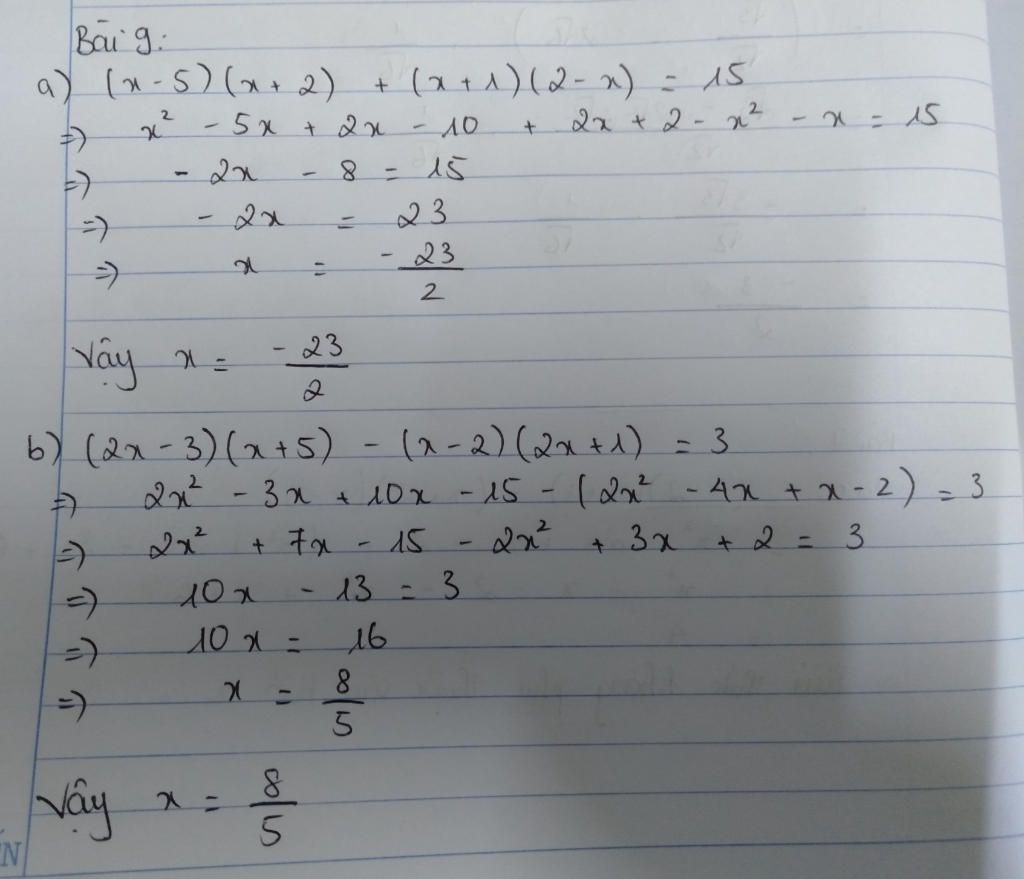 Bài 9:
a) (x - 5)(x + 2) + (x + 1)(2 - x) = 15
=> x² - 5x + 2x - 10 + 2x + 2 - x² - x = 15
=> - 2x - 8 = 15
=> - 2x = 23
=> x = -23/2
Vậy x = -23/2
b) (2x - 3)(x + 5) - (x - 2)(2x + 1) = 3
=> 2x² - 3x + 10x - 15 - (2x² - 4x + x - 2) = 3
=> 2x² + 7x - 15 - 2x² + 3x + 2 = 3
=> 10x - 13 = 3
=> 10x = 16
=> x = 8/5
Vậy x = 8/5